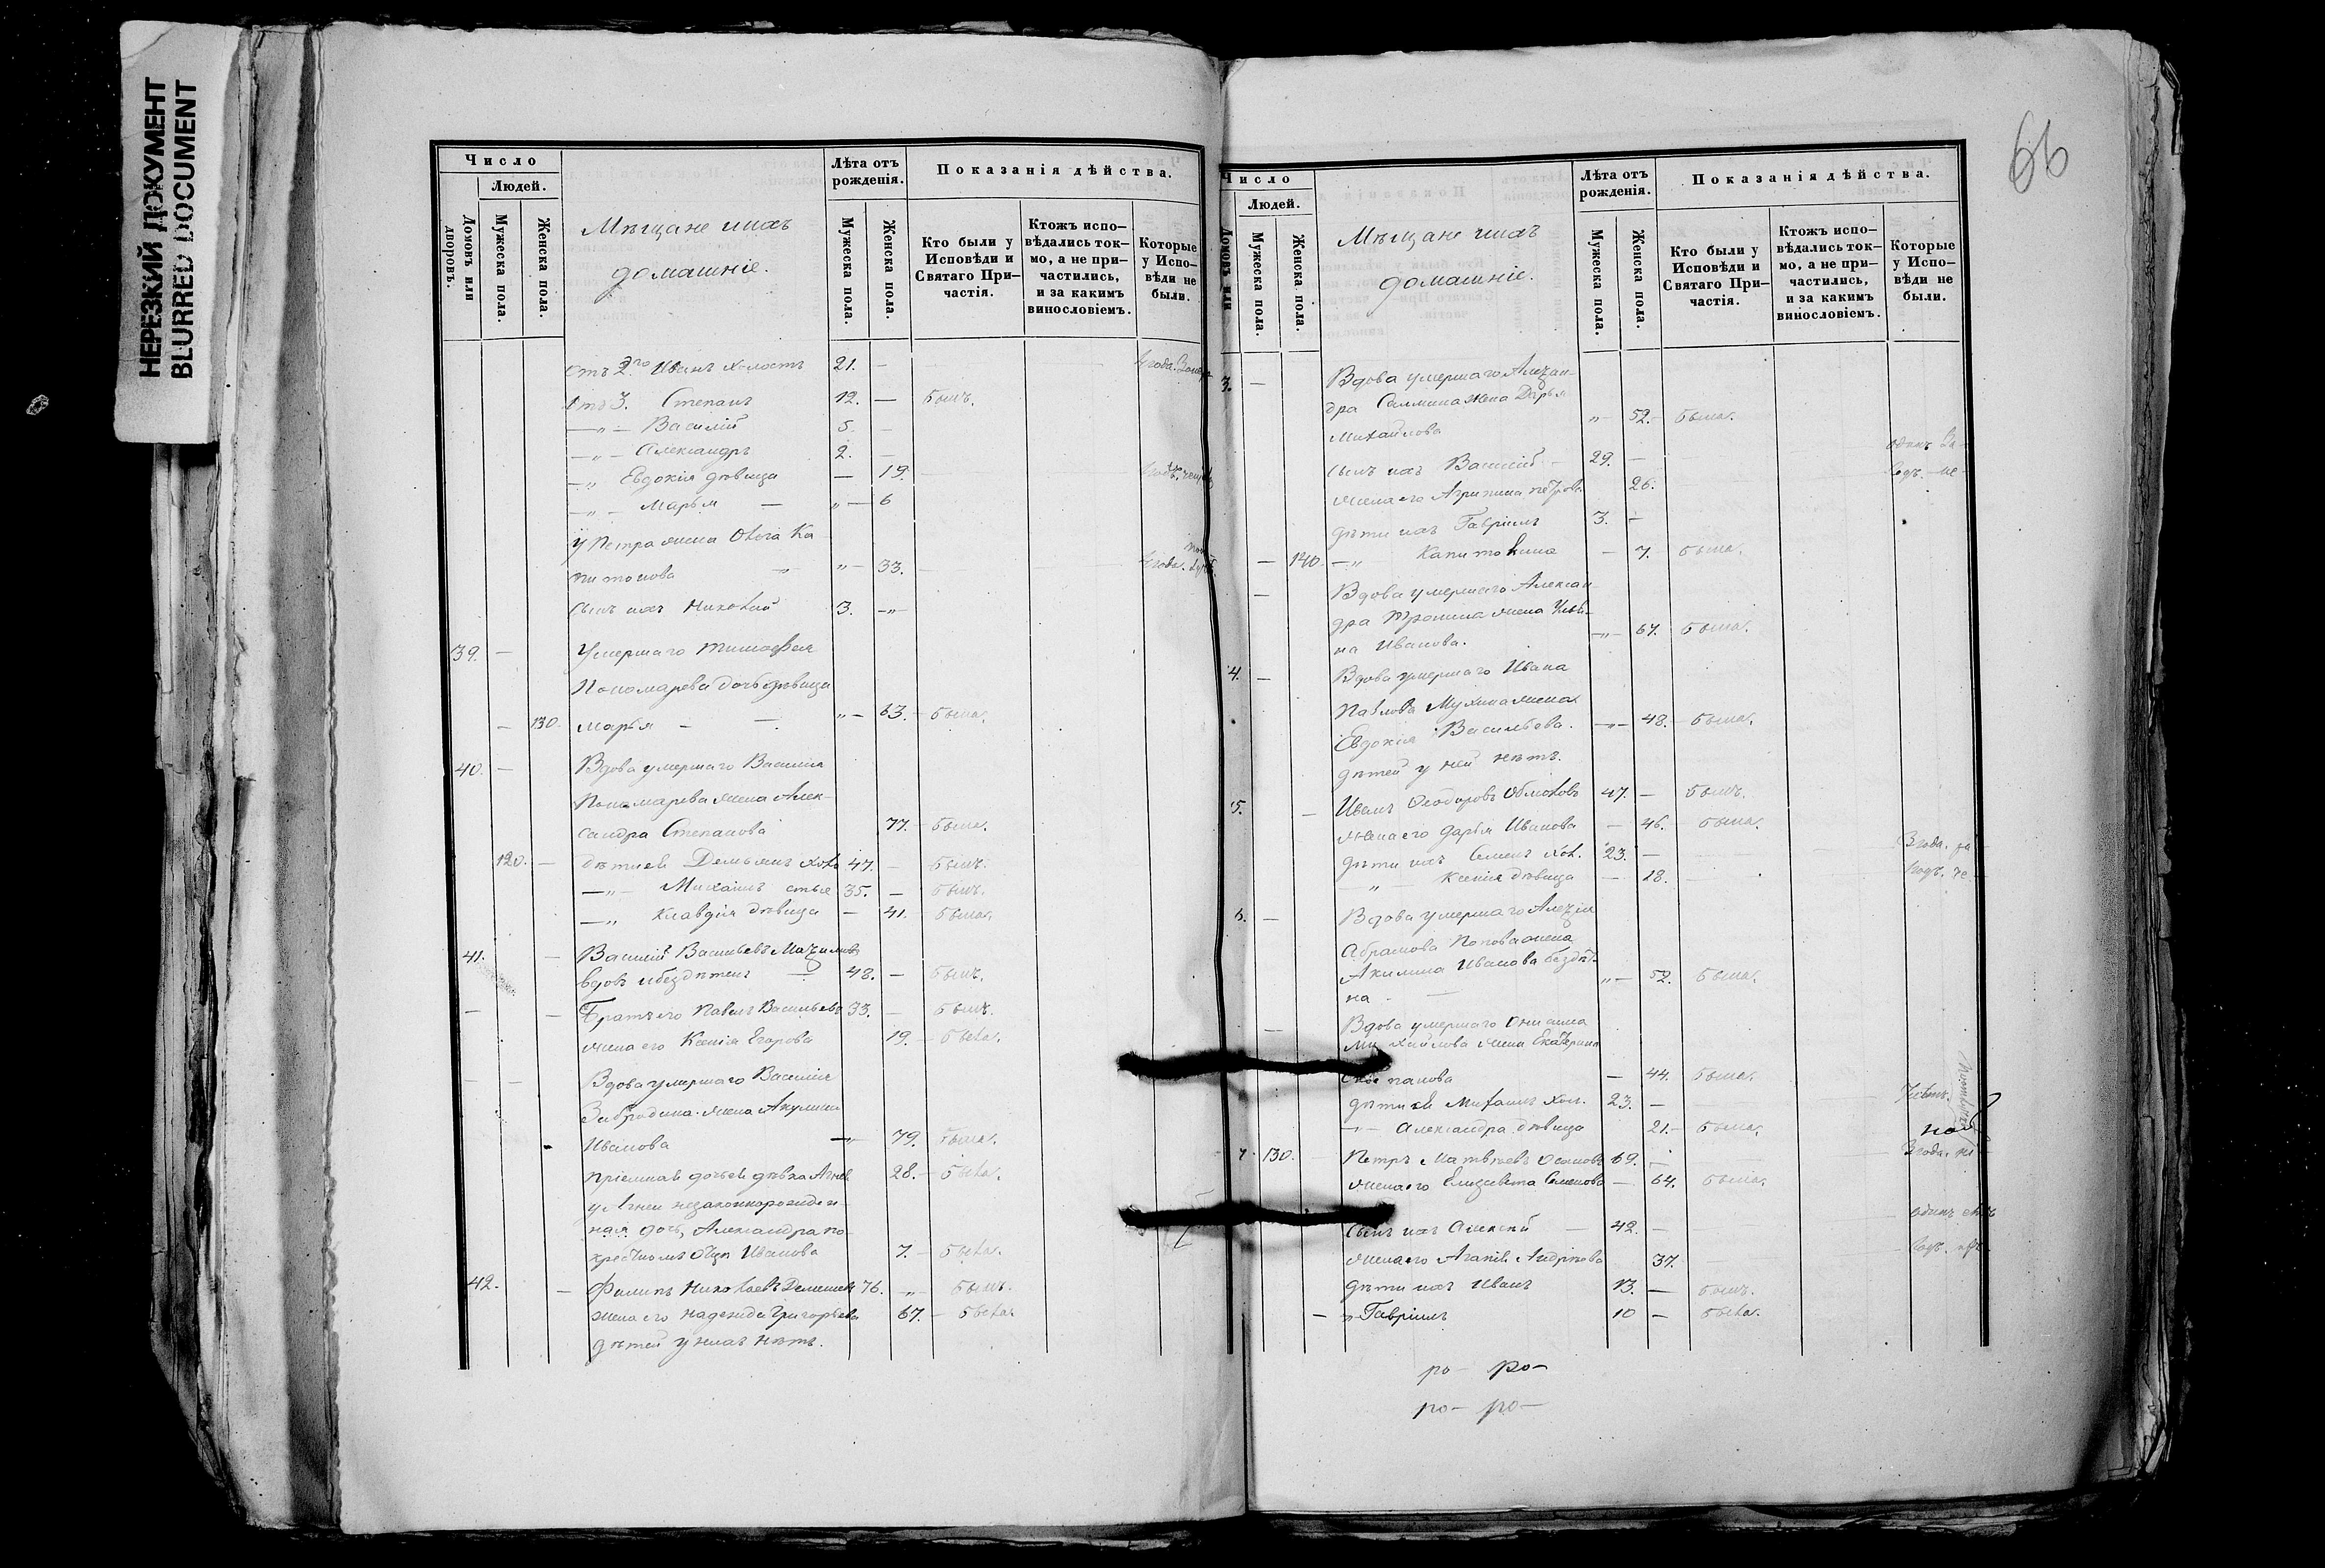 НЕРЕЗКИЙ ДОКУМЕНТ
BLURRED DOCUMENT
Число
Людей.
Домовъ или дворовъ.
Мужеска пола.
Женска пола.
Мѣщане ихъ
домашніе.
Лѣта отъ рожденія.
Мужеска пола.
Женска пола.
Показанія дѣйства.
Кто были у Исповѣди и Святаго При—частія.
Ктожъ испо—вѣдались ток—мо, а не при—частились, и за какимъ винословіемъ.
Которые у Испо—вѣди не были.
отъ 2го Иванъ холостъ 21. —
Отъ 3. Степанъ 12. — былъ.
—„— Василій 5. —
—„— Александръ 2. —
—„ Евдокія дѣвица — 19.
—„— Марья — „— 6
У Петра жена Ольга Ка
питонова „ „— 33.
сынъ ихъ Николай 3. —„—
39. — Умершаго Тимофея
Пономарева дочь дѣвица
— 130 Марья — — „— 63. — была.
40. — Вдова умершаго Василія
Пономарева жена Алек-
сандра Степанова 77. — была.
120. — дѣти ея Демьянъ хол 47. — былъ.
—„— Михаилъ 35. — былъ.
—„ Клавдія дѣвица — 41. — была.
41. — Василій Васильевъ
вдовъ и бездѣтенъ 48. — былъ.
— — Братъ его Павелъ Васильевъ 33. — былъ.
жена его Ксенія Егорова 19. — была.
— — Вдова умершаго Василія
Забродина жена Акулина
Иванова —„ 79. была.
пріемная дочь ея дѣвка 28. — была.
у незаконнорожден
ная дочь, Александра по
крестномъ отцѣ Иванова 7. — была.
42. — Филипъ Николаевъ 76. —„— былъ.
жена его Надежда Григорьева 67. — была
дѣтей у нихъ нѣтъ.
66
Число
Людей.
Домовъ или
Мужеска пола.
Женска пола.
Мѣщане ихъ
домашніе.
Лѣта отъ рожденія.
Мужеска пола.
Женска пола.
Показанія дѣйства.
Кто были у Исповѣди и Святаго При—частія.
Ктожъ испо—вѣдались ток—мо, а не при—частились, и за какимъ винословіемъ.
Которые у Испо—вѣди не были.
3. — Вдова умершаго
дра жена Дарья
Михайлова „— 52. — была.
сынъ ихъ Василій — 29. —
жена его Агрипина Петрова 26.
дѣти ихъ Гавріилъ 3. —
— 140. —„ Капитолина — 7. — была.
— Вдова умершаго Алексан
дра жена
на Иванова. —„— 67. была.
4. — Вдова умершаго Ивана
Павлова Мухина жена
Евдокія Васильева. —„— 48. — была.
дѣтей у ней нѣтъ.
5. — Иванъ Ѳеодоровъ 47. — былъ.
жена его Дарья Иванова — 46. — была.
дѣти ихъ Семенъ хол. 23. — 3 года.
„ Ксенія дѣвица — 18.
6. — Вдова умершаго
Абрамова Попова жена
Акилина Иванова бездѣт-
на — „— 52. была.
— Вдова умершаго Онисима
Михайлова жена Екатерина
Степанова — 44. была.
дѣти ея Михаилъ хол. 23. —
—„— Александра дѣвица 21. — была.
7 130. Петръ Матвѣевъ 69. — 3 года.
жена его Елизавета Семенова — 64. была.
сынъ ихъ Алексѣй — 42. —
жена его Андрѣева 37.
дѣти ихъ Иванъ 13. — былъ.
— „ Гавріилъ 10 —
ро— ро—
ро— ро—